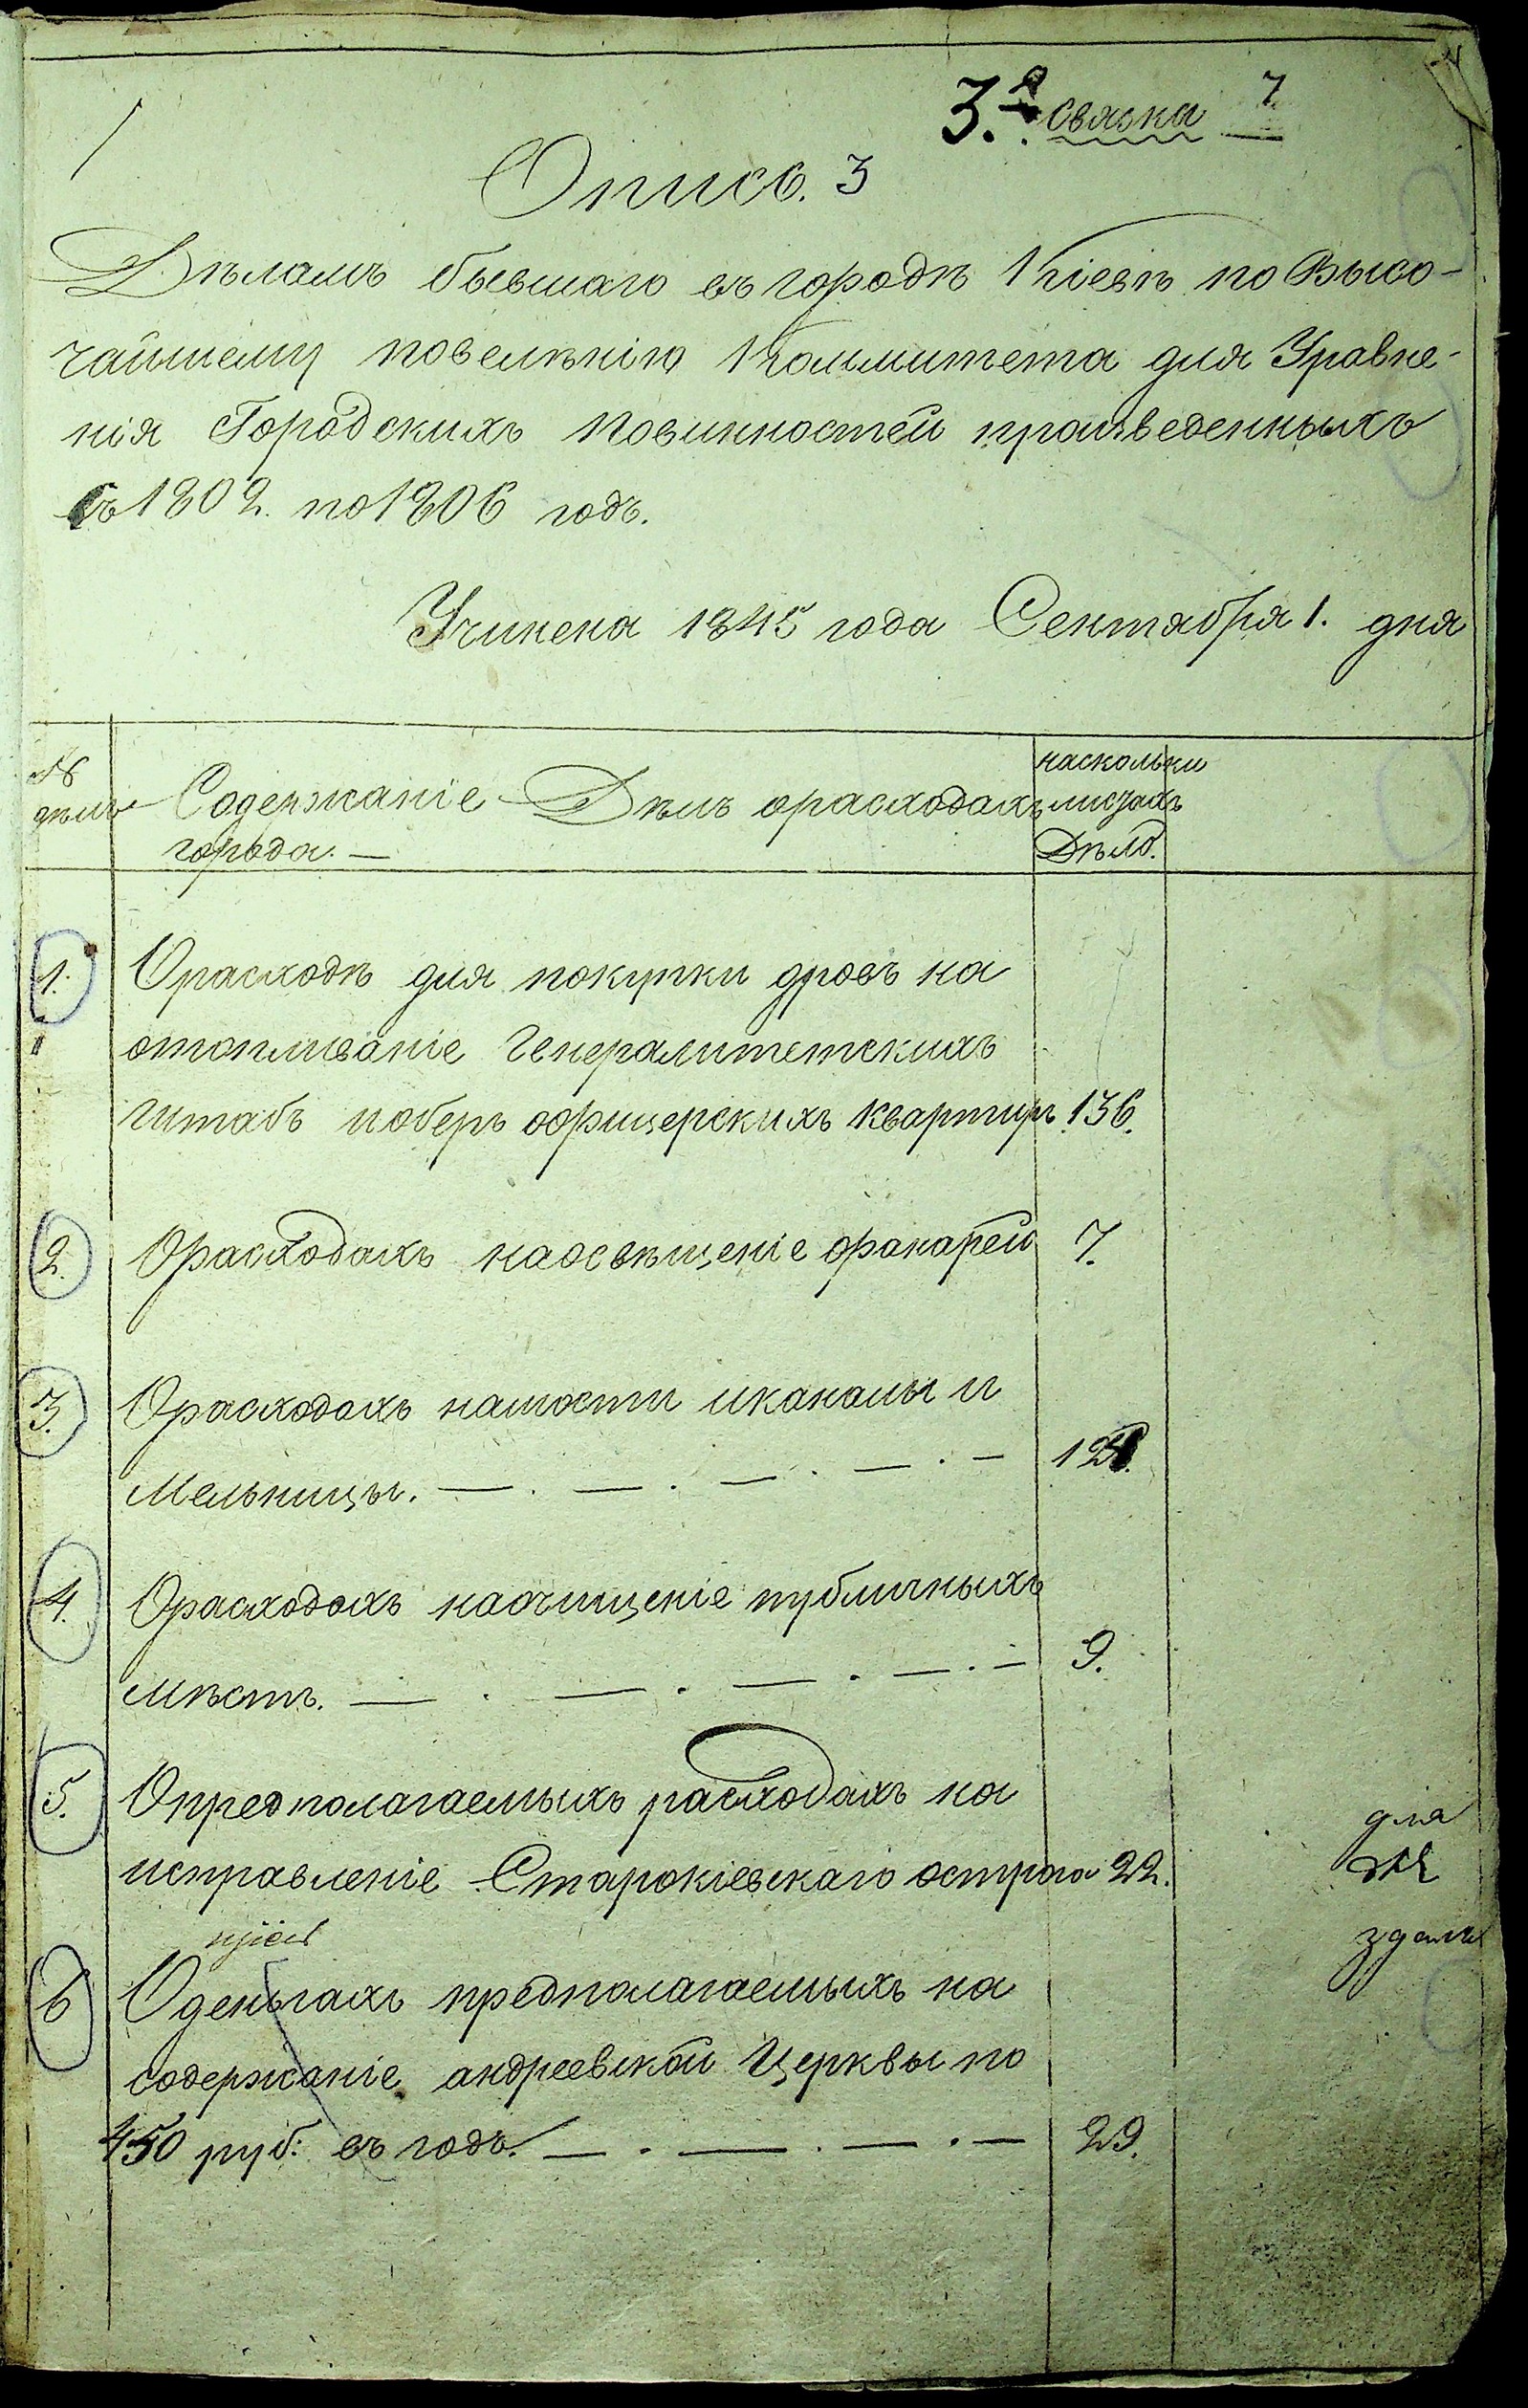 3.я связка 7
Опись. 3
Дѣламъ бывшаго въ городѣ Кіевѣ по Высо-
чайшему повелѣнію Коммитета для Уравне-
нія Городскихъ повинностей произведенныхъ
съ 1802. по 1806 годъ.
Учинена 1845 года Сентября 1. дня
№ дѣлъ
Содержаніе Дѣлъ орасходахъ
города. —
насколькихъ
листахъ
Дѣло.
1. Орасходѣ для покупки дровъ на
отопливаніе Генералитетскихъ
штабъ иоберъ офицерскихъ квартиръ 136.
2. Орасходахъ наосвѣщеніе фанарей 7.
3. Орасходахъ намости иканалы и
Мельницы. — . — . — . — . —
4. Орасходахъ наочищеніе публичныхъ
мѣстъ. — . — . — . — . — 9.
5. Опредполагаемыхъ расходахъ на
исправленіе Старокіевскаго острога 22.
для
6 Оденьгахъ предполагаемыхъ на
содержаніе андреевской Церквы по
450 руб: въ годъ. — . — . — . — 29.